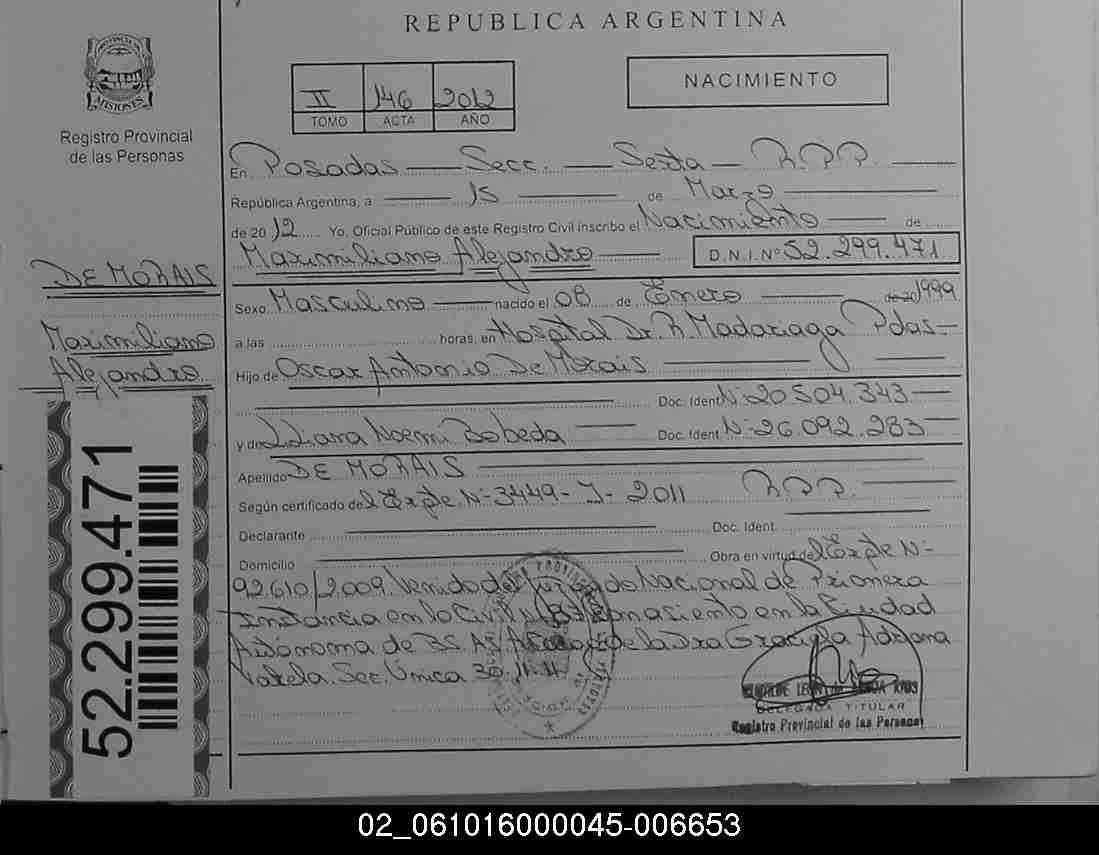 REPUBLICA ARGENTINA
PROVINCIA DE MISIONES
Registro Provincial
de las Personas
II 146 2012
TOMO ACTA AÑO
NACIMIENTO
En Posadas Secc. Sexta R.P.P.
República Argentina, a 15 de Marzo
de 2012 Yo, Oficial Público de este Registro Civil inscribo el Nacimiento de
Maximiliano Alejandro D.N.I. Nº 52.299.471
DE MORAIS
Maximiliano
Alejandro
52.299.471
Sexo Masculino nacido el 08 de Enero de 20 1999
a las horas, en Hospital Dr. R. Madariaga Pdas
Hijo de Oscar Antonio De Morais
Doc. Ident. Nº 20.504.343
y de Liliana Noemi Bobeda Doc. Ident. Nº 26.092.283
Apellido DE MORAIS
Según certificado del Expte. Nº 3449-J-2011 R.P.P.
Declarante Doc. Ident.
Domicilio Obra en virtud del Expte Nº
92.610/2009. Venido del Juzgado Nacional de Primera
Instancia en lo Civil con asiento en la Ciudad
Autónoma de BS. AS. A Cargo de la Dra Graciela Adriana
Varela. Sec. Única 30.11.11
DELEGADA TITULAR
Registro Provincial de las Personas
02_061016000045-006653